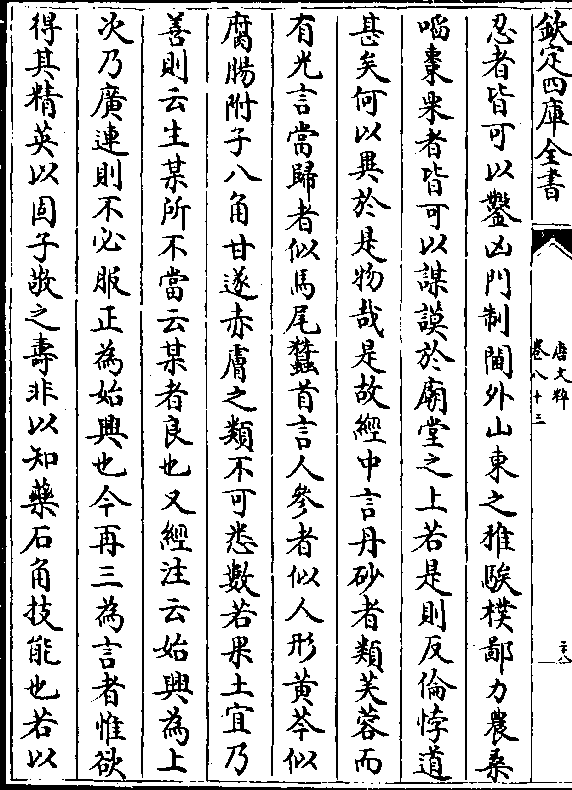 欽定四庫全書
唐文粹
卷八十三
忍者皆可以鑿凶門制閫外山東之稚騃樸鄙力農桑
啗棗栗者皆可以謀謨於廟堂之上若是則反倫悖道
甚矣何以異於是物哉是故經中言丹砂者類芙蓉而
有光言當歸者似馬尾蠶首言人參者似人形黃芩似
腐腸附子八角甘遂赤膚之類不可悉數若果土宜乃
善則云生某所不當云某者良也又經注云始興為上
次乃廣連則不必服正為始興也今再三為言者惟欲
得其精英以固子敬之壽非以知藥石角技能也若以